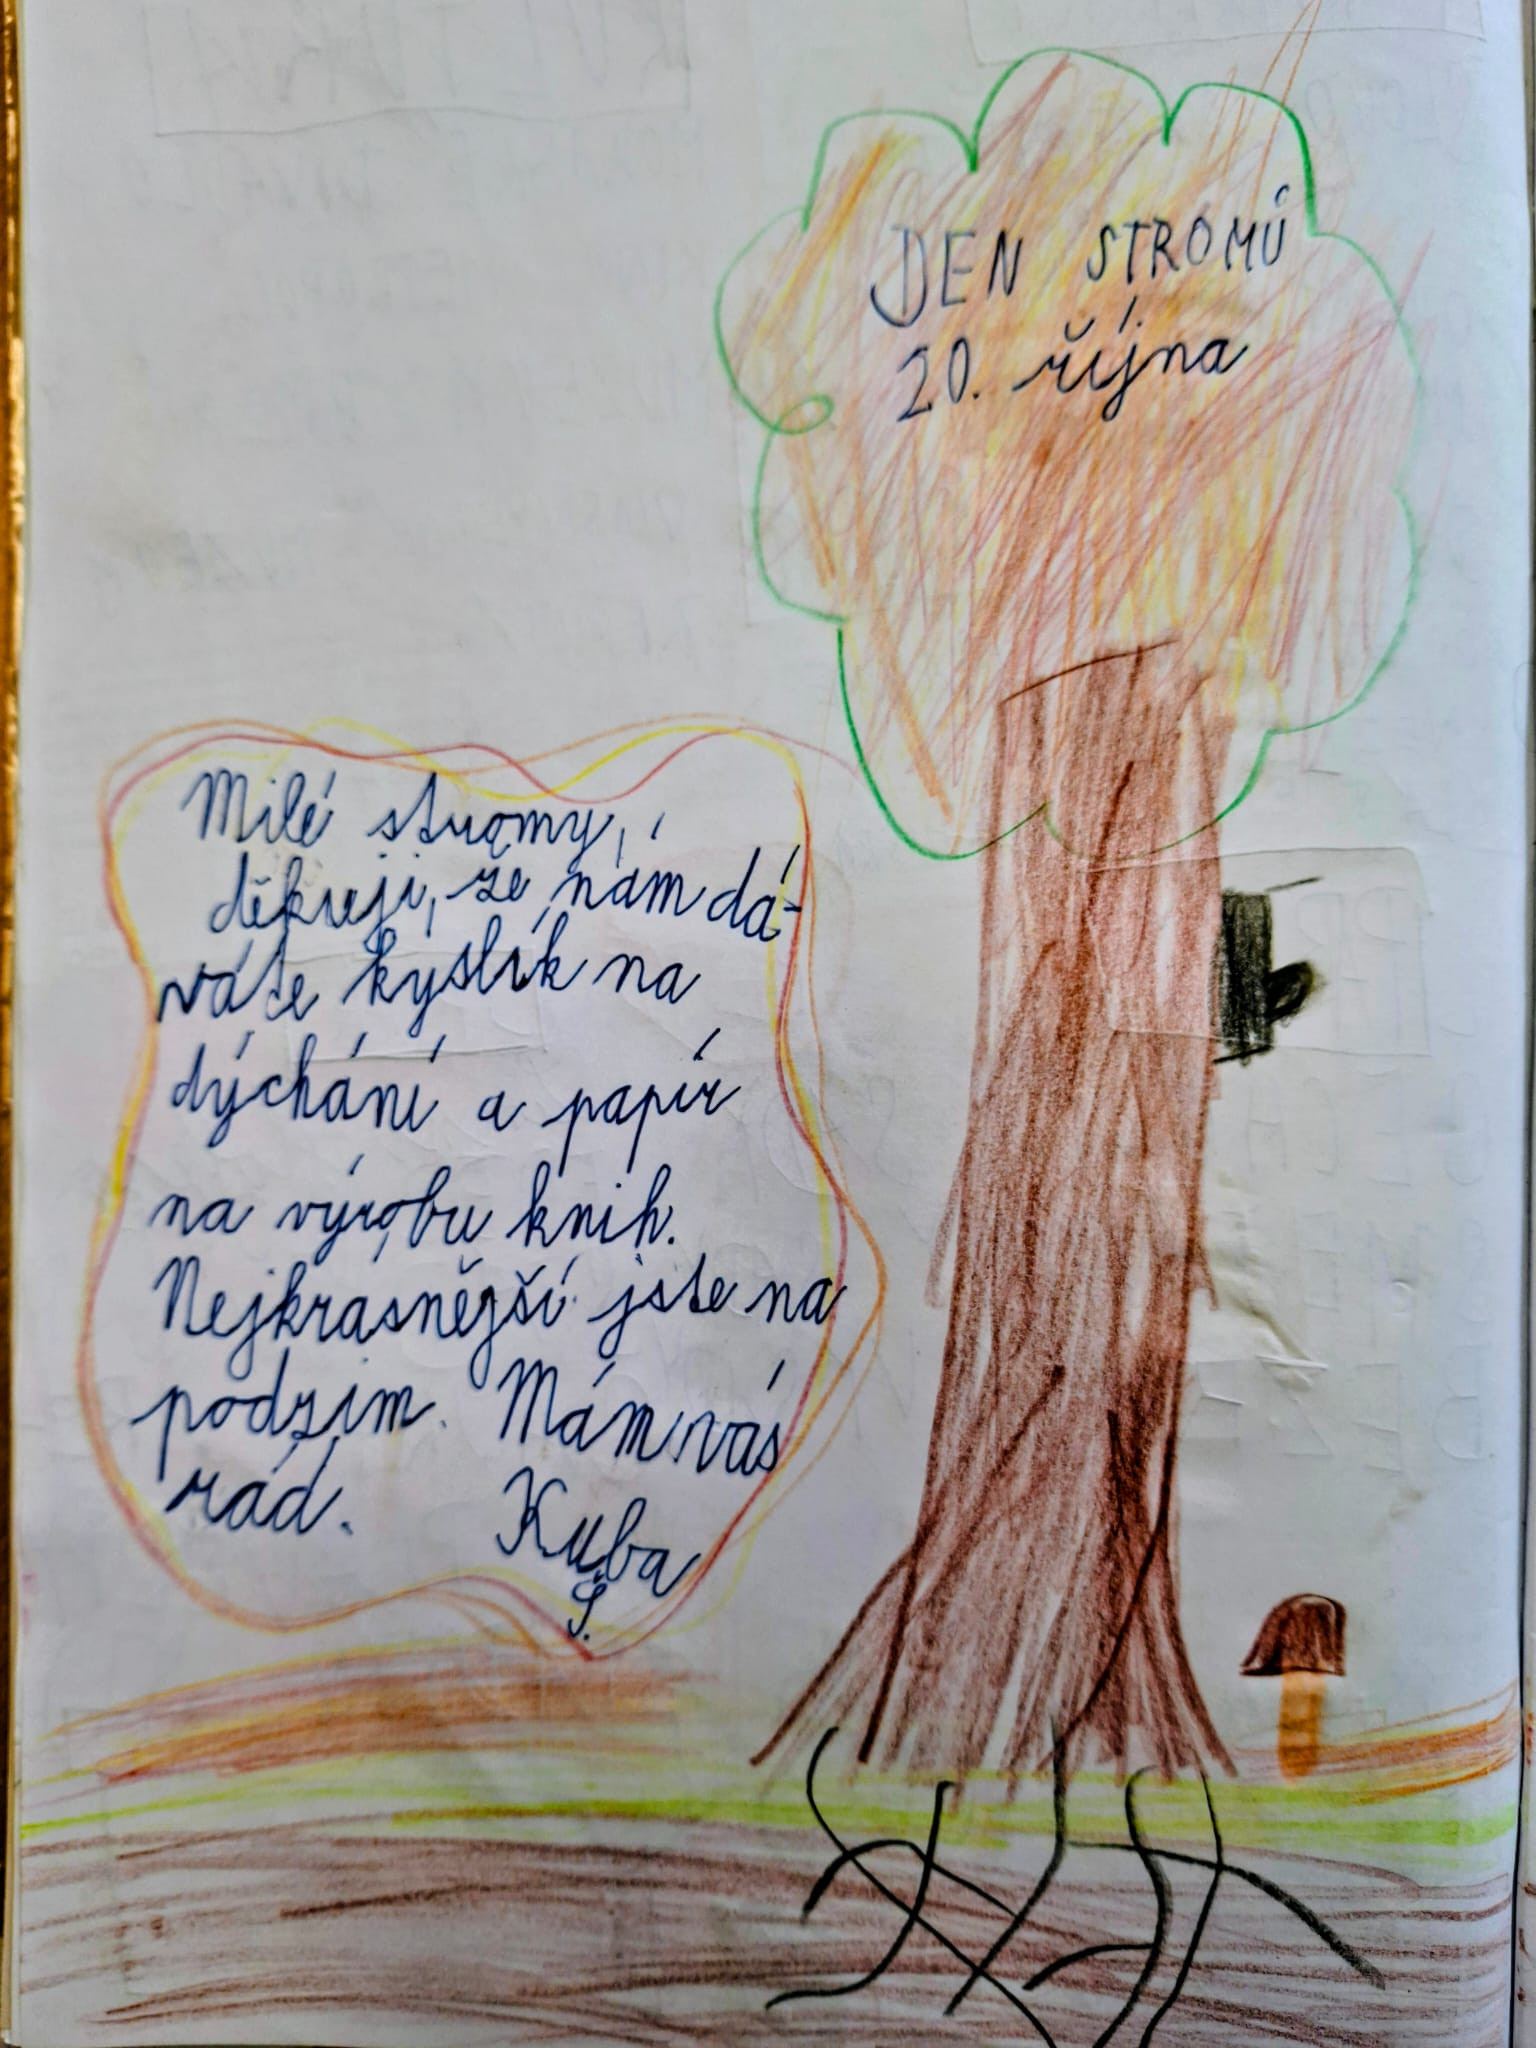 DEN STROMŮ
20. října
Milé stromy,
děkuji, že nám dá-
váte kyslík na
dýchání a papír
na výrobu knih.
Nejkrásnější jste na
podzim. Mám vás
rád. Kuba
Š.